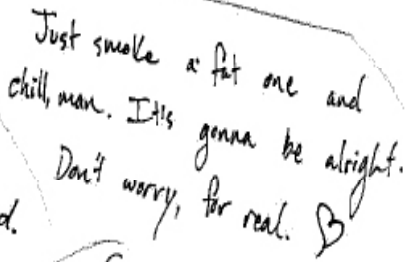 Just smoke a fat one and
chill, man. It's gonna be alright.
Don't worry, for real. ♡
d.